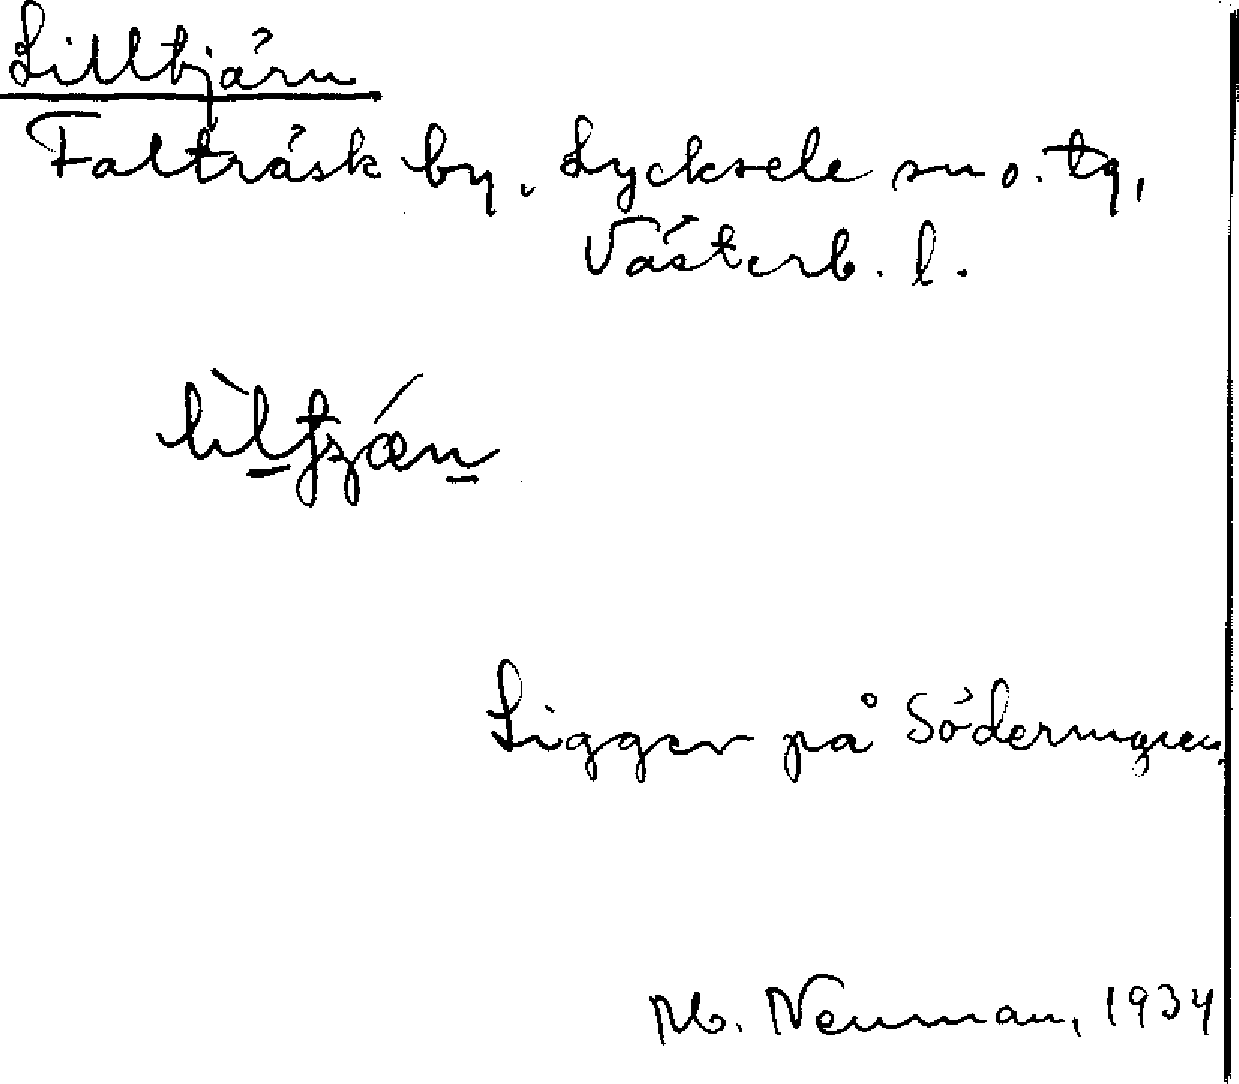 Lilltjärn
Falträsk by, Lycksele sn o. tg,
Västerb. l.
Ligger på Södermyren.
Nb. Neuman, 1934